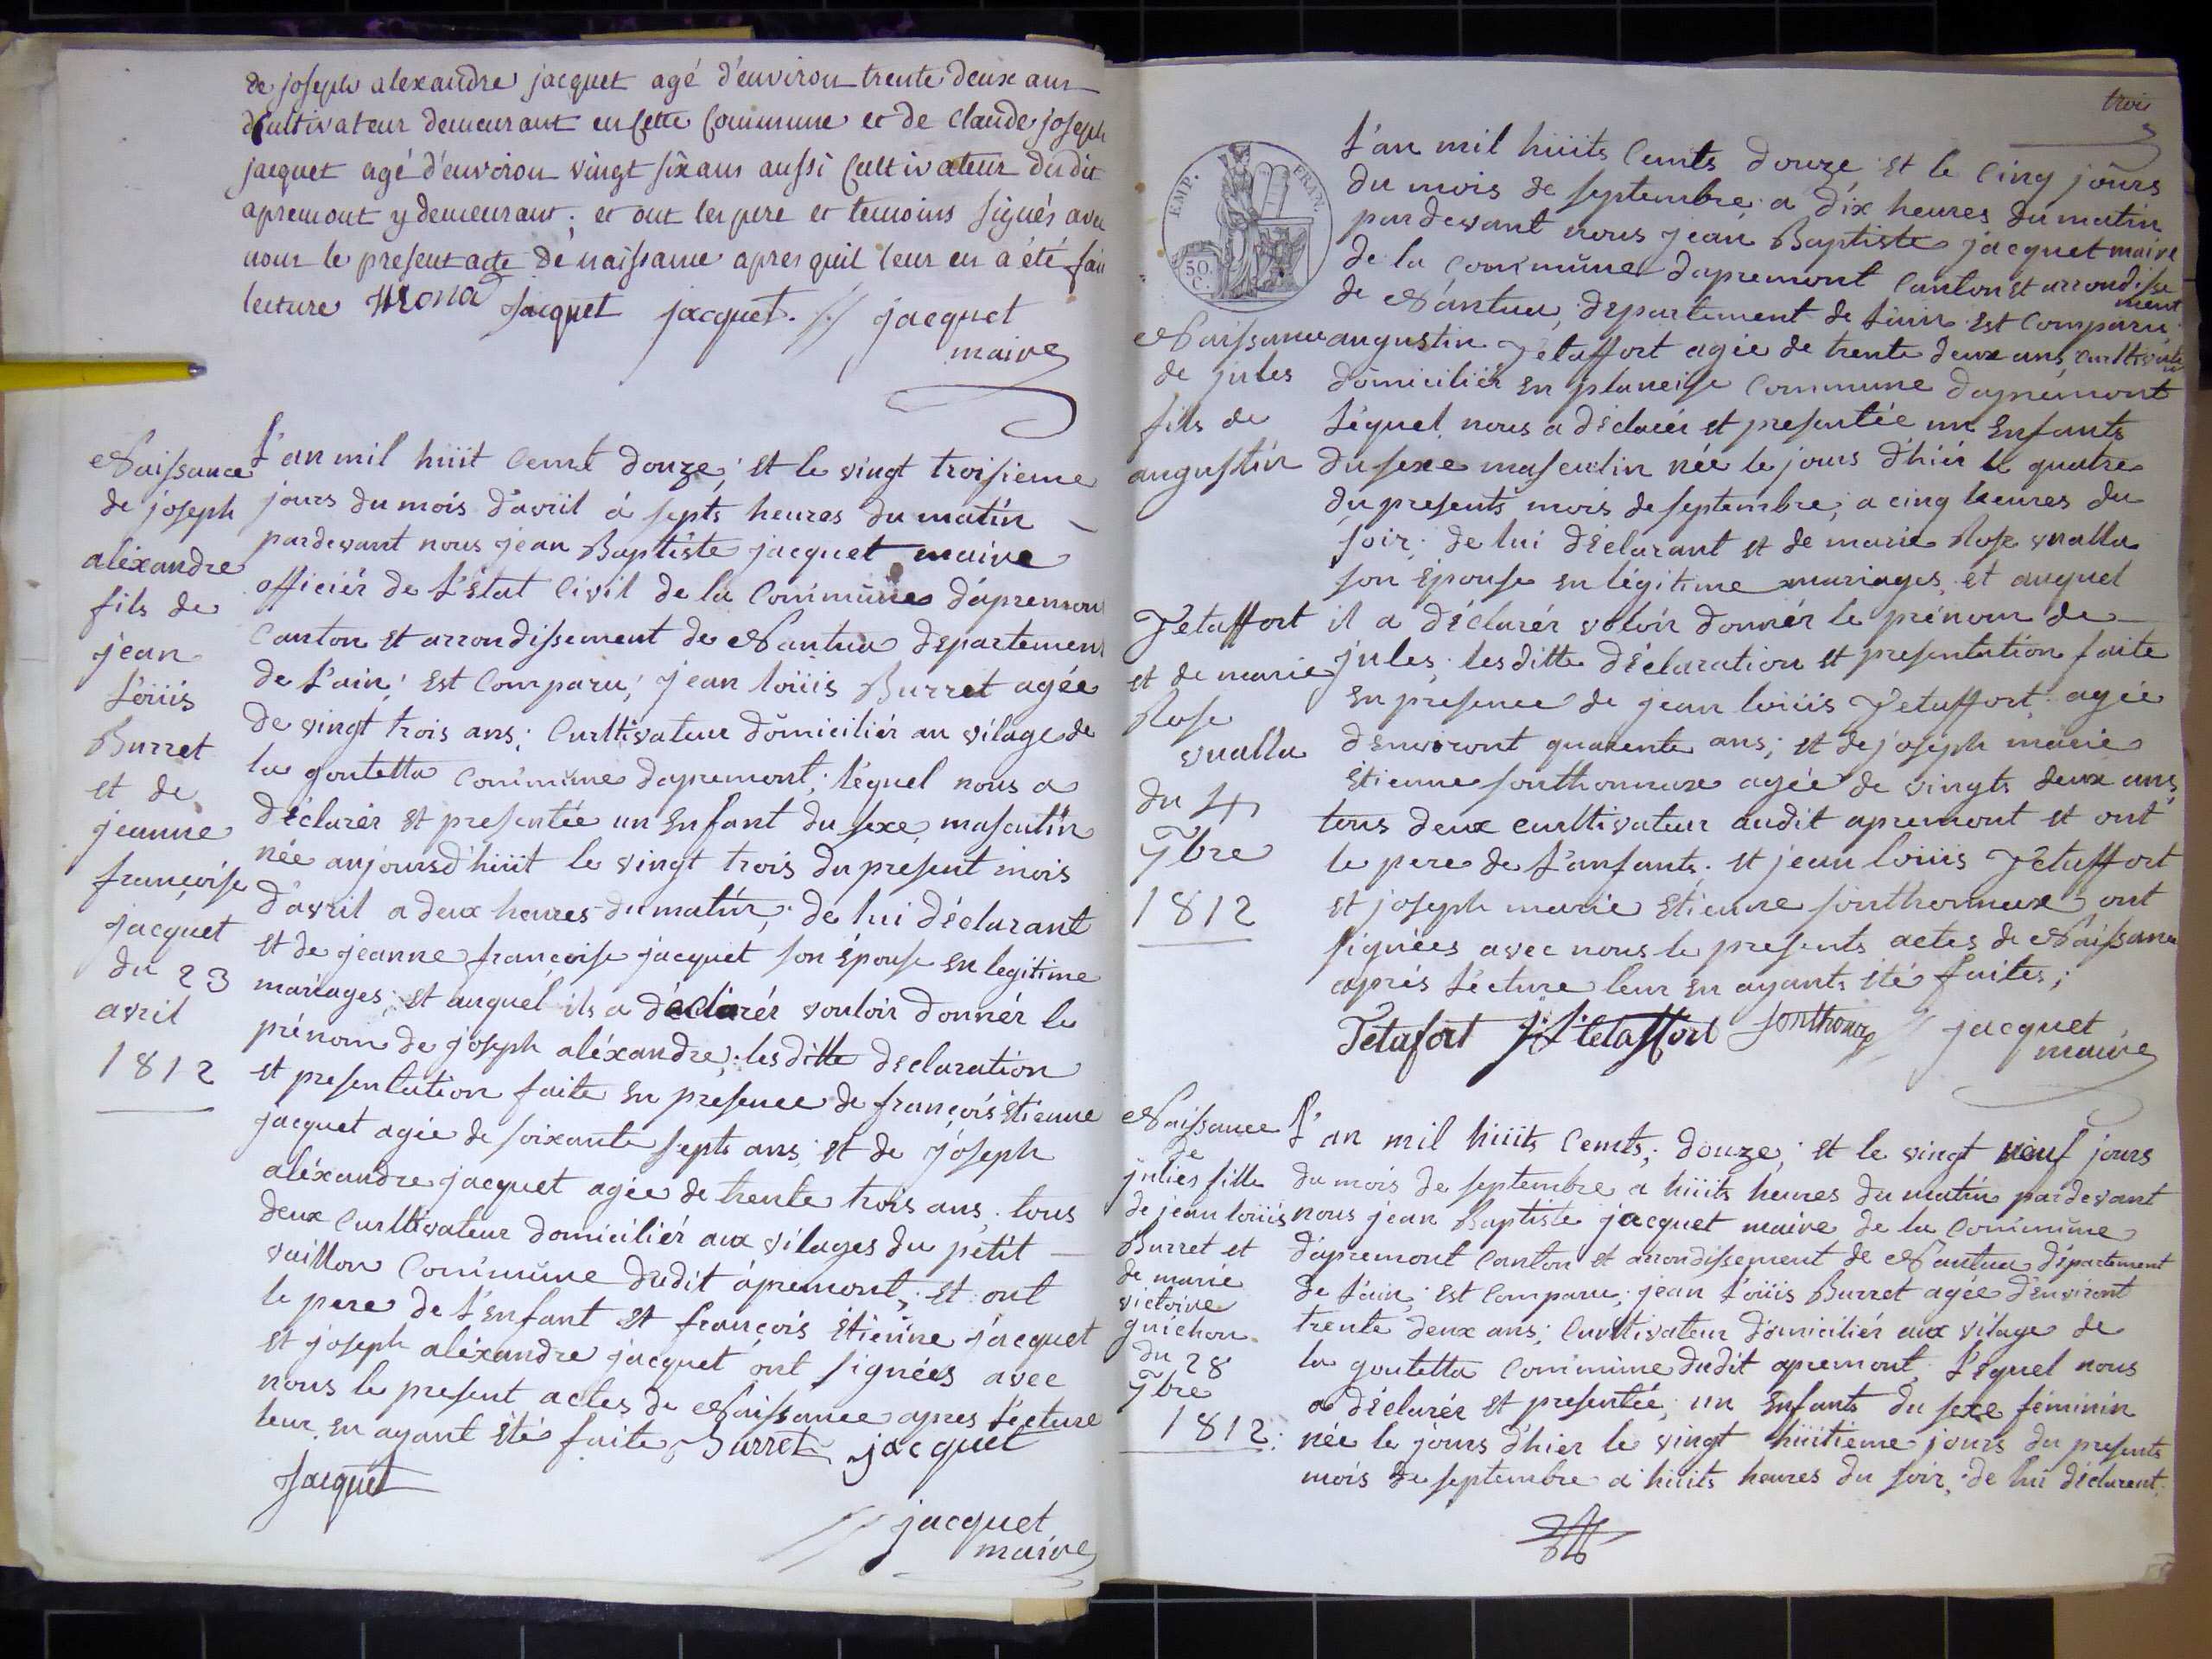 de joseph alexandre jacquet agé d'environ trente deux ans
cultivateur demeurant en Cette Commune et de Claude joseph
jacquet agé d'environ vingt six ans aussi Cultivateur du dit
apremont y demeurant; et ont les pere et temoins signés avec
nous le present acte de naissance apres quil leur en a été fait
lecture jacquet jacquet. jacquet
maire
Naissance
de joseph
aléxandre
fils de
jean
Loüis
Burret
et de
jeanne
françoise
jacquet
du 23
avril
1812
L'an mil huit Cemt douze; et le vingt troisieme
jours du mois d'avril á septs heures du matin
pardevant nous jean Baptiste jacquet maire
officiér de L'état Civil de la Commune dápremont
Canton et arrondissement de Nantua departement
de L'ain; est Comparu; jean loüis Burret agée
de vingt trois ans; Curltivateur domiciliér au vilage de
la goutetta Commune dapremont; léquel nous a
déclarér et presentée un Enfant du sexe masculin
née aujoursd'huit le vingt trois du présent mois
d'avril a deux heures du matin; de lui déclarant
et de jeanne françoise jacquet son épouse en legitime
mariages; et auquel ils a déclarér vouloir donnér le
prénom de joseph aléxandre; lesditte declaration
et presentation faite en presence de françois étienne
jacquet agée de soixante septs ans et de joseph
aléxandre jacquet agée de trente trois ans; tous
deux Curltivateur domiciliér aux vilages du petit
vaillon Commune dudit ápremont; et ont
le pere de L'enfant et françois étienne jacquet
et joseph aléxandre jacquet ont signées avec
nous le present actes de Naissance apres Lécture
leur en ayant été faite Burret jacquet
jacquet
jacquet
maire
trois
EMP. FRAN.
50 C.
L'an mil huiits Cemts douze et le Cinq jours
du mois de septembre a dix heures du matin
pardevant nous jean Baptiste jacquet maire
de la Commune dapremont Canton et arrondisse
ment
de Nantua, departement de Lain est Comparu
augustin Jetaffort agée de trente deux ans, curltivateur
domiciliér en planeise Commune dapremont
Léquel nous a déclarér et presentée un Enfants
du sexe masculin née le jours d'hiér le quatre
du presents mois de septembre; a cinq heures du
soir; de lui déclarant et de marie Rose vuallu
son épouse en légitime mariages et auquel
il a déclarér voloir donnér le prénom de
jules; lesditte déclaration et presentation faite
en presence de jean loüis Jetaffort agée
d'environt quarente ans; et de joseph marie
étienne sonthonnax agée de vingts deux ans
tous deux curltivateur audit apremont et ont
le pere de L'anfants; et jean loüis Jetaffort
et joseph marie etienne sonthonnax ont
signées avec nous le presents actes de Naissance
aprés Lécture leur en ayants été faites;
Tetafort j L tetaffort sonthonax jacquet
maire
Naissance
de jules
fils de
augustin
Jetaffort
et de marie
Rose
vuallu
du 4
7bre
1812
Naissance
de
julies fille
de jean loüis
Burret et
de marie
victoire
guichon
du 28
7bre
1812:
L'an mil huiits Cemts; douze; et le vingt neuf jours
du mois de septembre a huiits heures du matin pardevant
nous jean Baptiste jacquet maire de la Commune
dápremont Canton et arrondissement de Nantua département
de Lain; est Comparu; jean Loüis Burret agée d'environt
trente deux ans; Curltivateur domiciliér aux vilage de
la goutetta Commune dudit apremont; Léquel nous
a déclarér et presentée; un Enfants du sexe féminin
née le jours d'hier le vingt huiitieme jours du presents
mois de septembre a huiits heures du soir; de lui déclarent